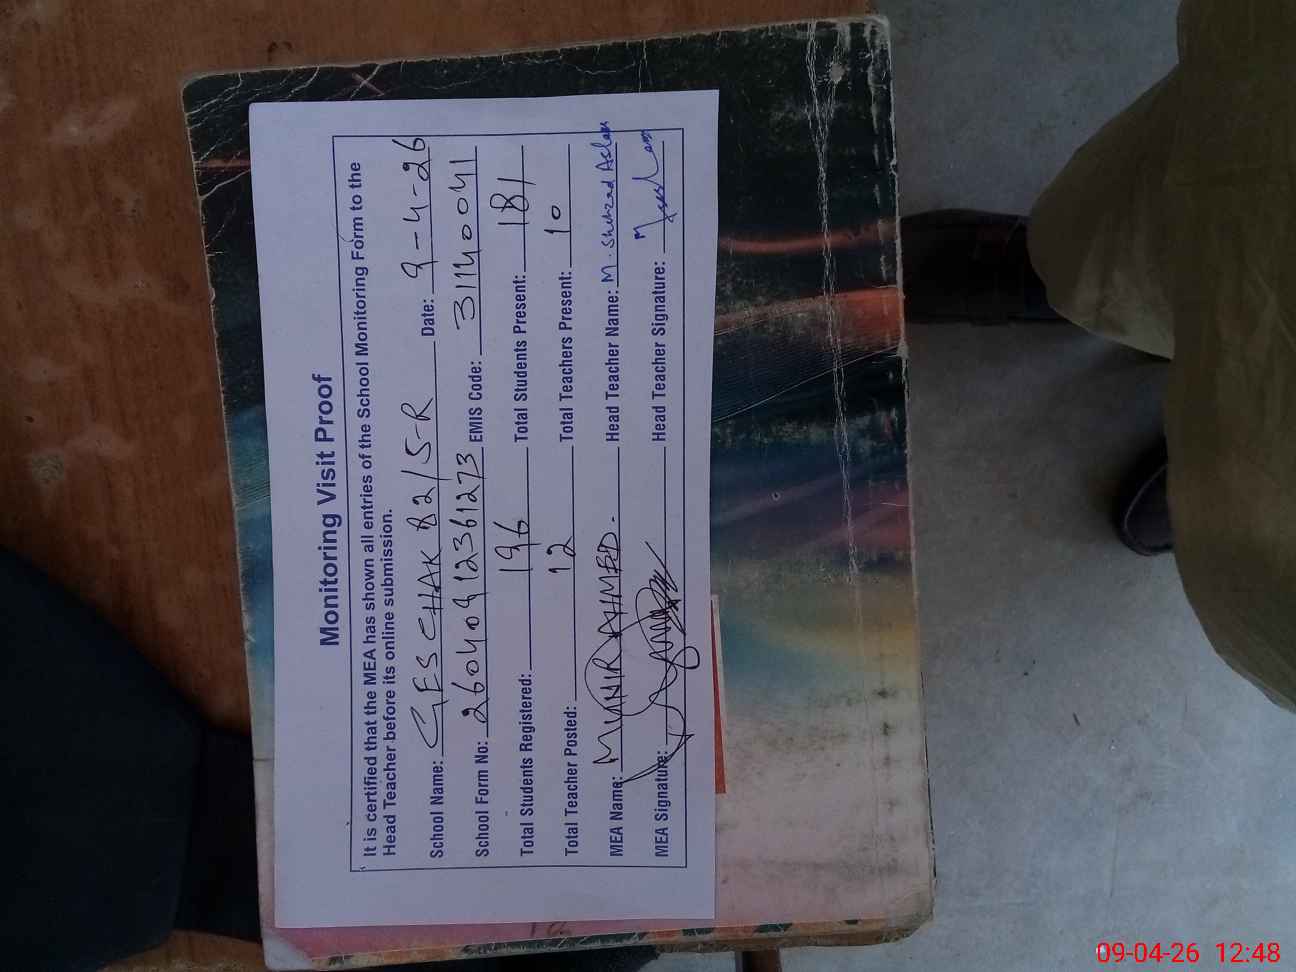 Monitoring Visit Proof
It is certified that the MEA has shown all entries of the School Monitoring Form to the
Head Teacher before its online submission.
School Name: GES CHAK 82/5-R Date: 9-4-26
School Form No: 26040912361273 EMIS Code: 31140041
Total Students Registered: 196 Total Students Present: 181
Total Teacher Posted: 12 Total Teachers Present: 10
MEA Name: MUNIR AHMED. Head Teacher Name: M. Shehzad Aslam
MEA Signature: Head Teacher Signature:
09-04-26 12:48